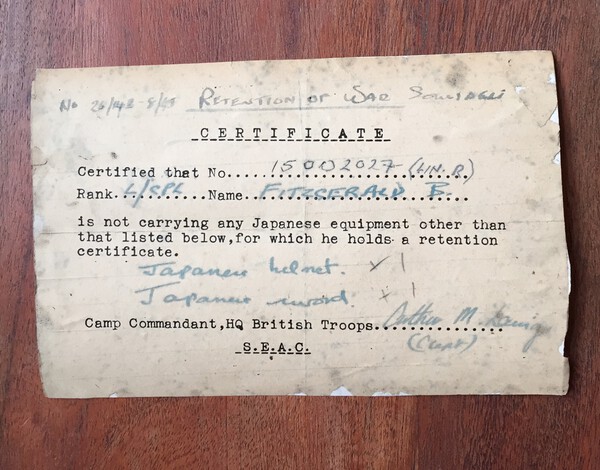 No RETENTION OF WAR
CERTIFICATE
Certified that No. 15002027 (LIN.R.)
Rank L/CPL Name FITZGERALD B.
is not carrying any Japanese equipment other than
that listed below,for which he holds a retention
certificate.
Japanese helmet. x 1
Japanese sword. x 1
Camp Commandant,HQ British Troops Arthur M.
(Capt)
S.E.A.C.